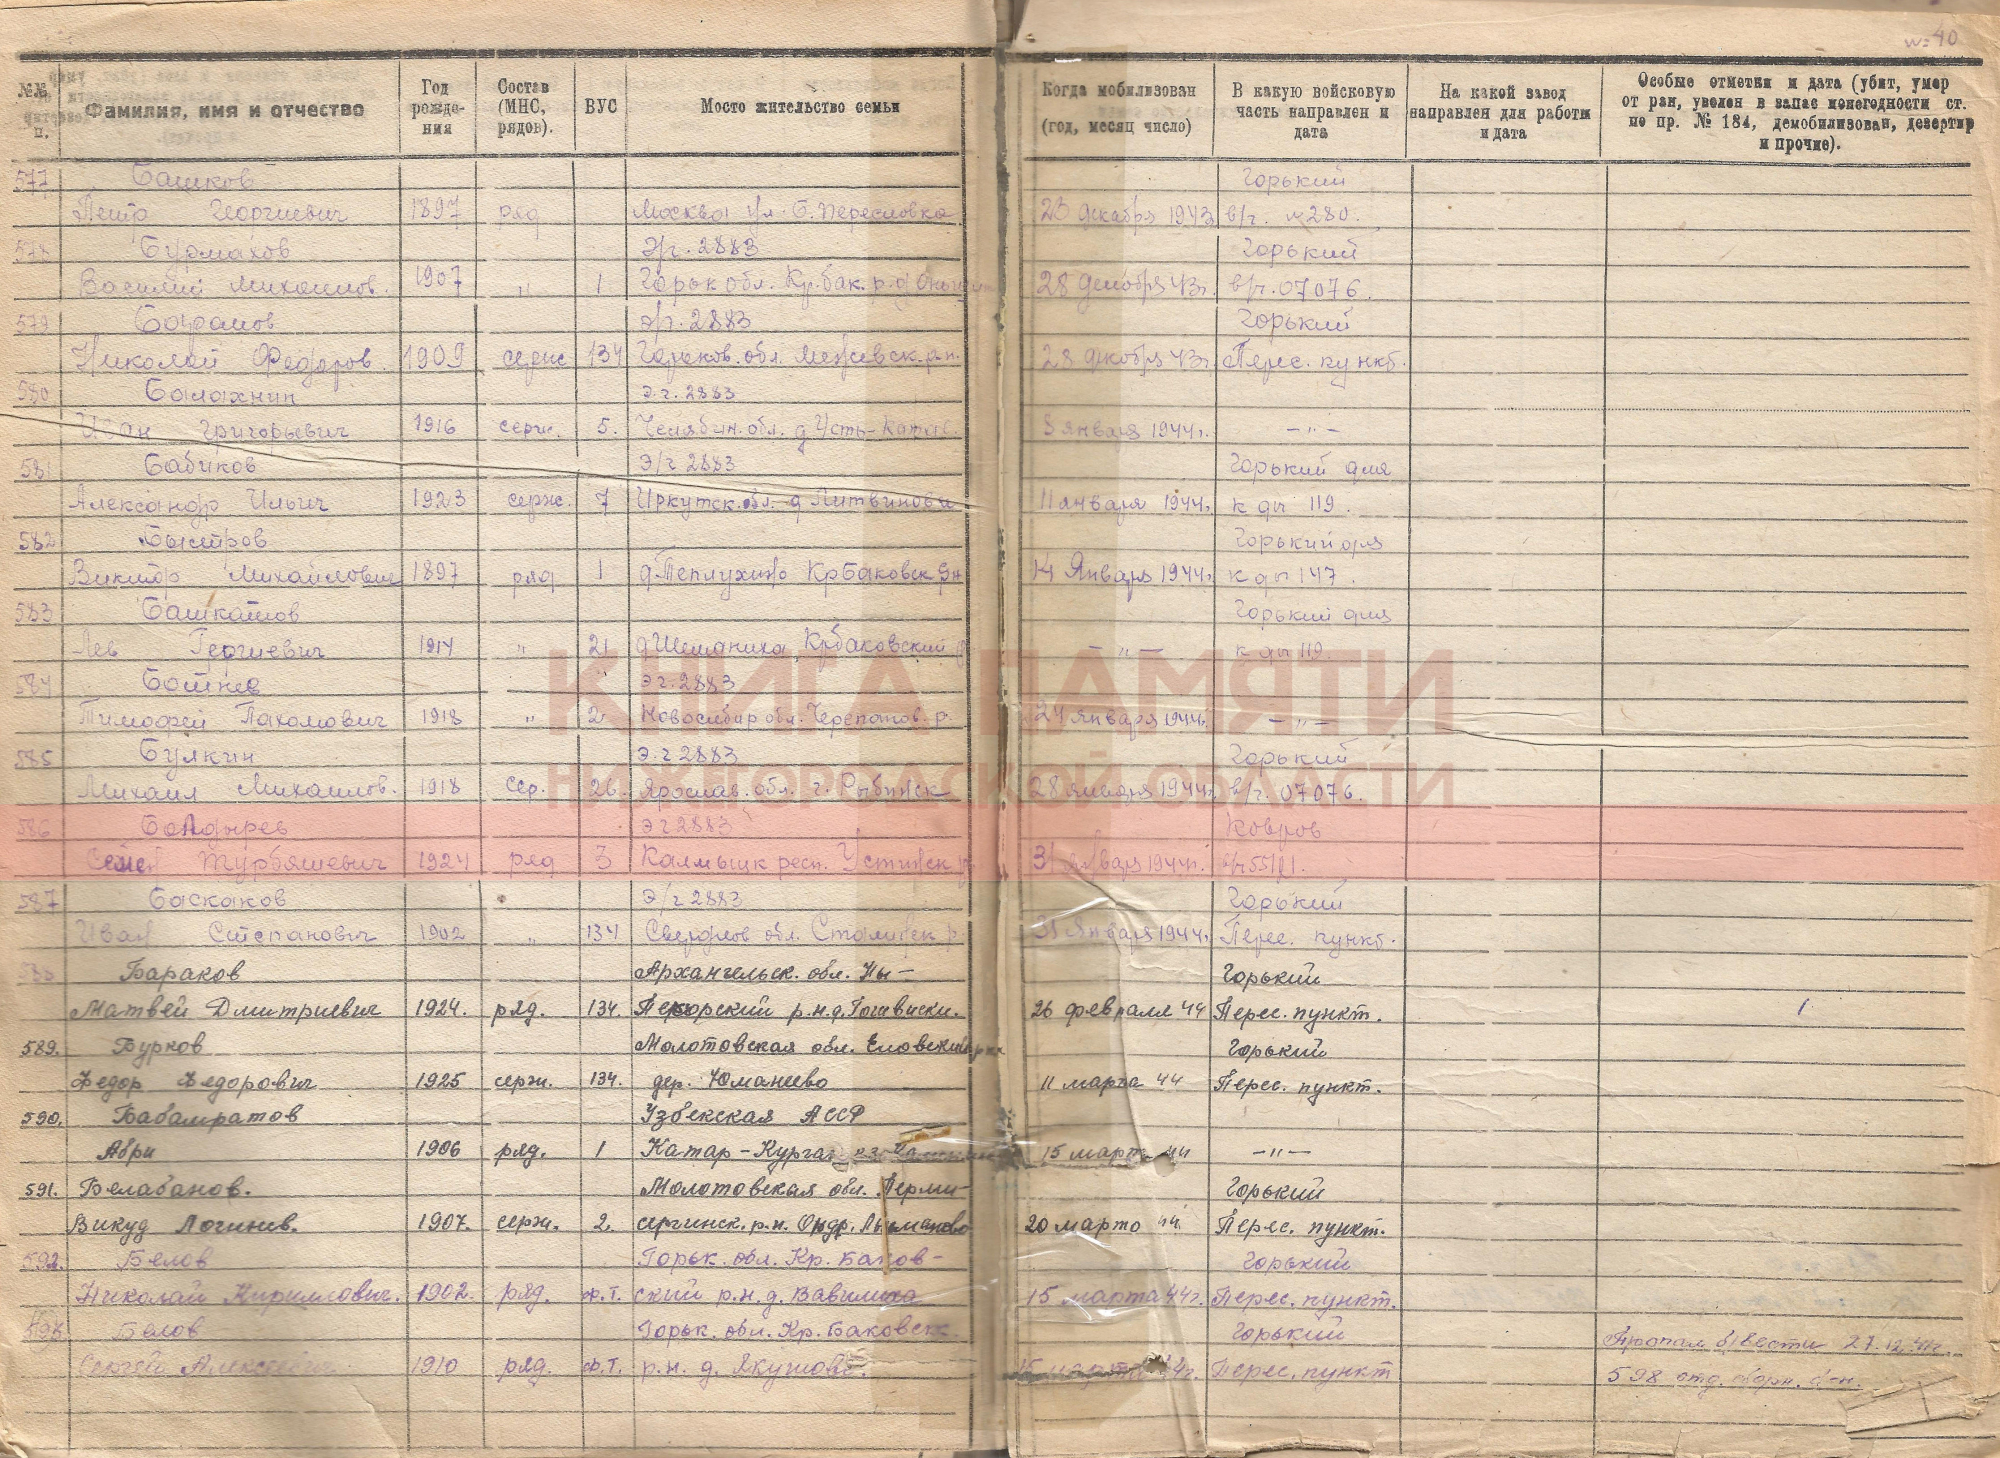 № 40
№№ п. Фамилия, имя и отчество Год рожде-ния Состав (МНС, рядов). ВУС Мосто жительство семьи Когда мобилизован (год, месяц число) В какую войсковую часть направлен и дата На какой завод направлен для работы и дата Особые отметки и дата (убит, умер от ран, уволен в запас монегодности ст. по пр. № 184, демобилизован, дезертир и прочие).
577 Башков Горький
Петр Георгиевич 1897 ряд Москва ул. Б. Переяловка 23 декабря 1943 в/ч. №280.
578 Бурмахов Э/г. 2883 Горький
Василий Михайлов. 1907 " 1 Горьк обл. Кр.бак. р. д 28 декабря 43г. в/ч. 07076
579 э/г. 2883 Горький
Николай Федоров. 1909 серж 134 Горьков. обл. р-н. 28 декабря 43г Перес. пункт.
580 Балахнин э.г. 2883
Иван Григорьевич 1916 серж. 5. Челябин. обл. д Усть-Катав. 3 января 1944г. — " —
581 Бабиков Э/г 2883 Горький для
Александр Ильич 1923 серж. 7 Иркутск. обл. д Литвинова 11 января 1944г. к ди 119.
582 Быстров Горький для
Виктор Михайлович 1897 ряд 1 д. Теплухино Крбаковск рн 14 Января 1944г. к ди 147.
583 Башкатов Горький для
Лев Гергиевич 1914 " 21 д Шеманиха Крбаковский р — " — к ди 119
584 Ботнев Э г. 2883
Тимофей Пахомович 1918 " 2 Новосибир обл. Черепанов. р. 24 января 1944г. — " —
585 Булкин Э.г 2883 Горький
Михаил Михаилов. 1918 сер. 26. Ярослав. обл. г. Рыбинск 28 января 1944г в/ч. 07076.
586 Болдырев Э г 2883 Ковров
Семен Турбяшевич 1924 ряд 3 Калмыцк респ. р. 31 января 1944г. в/ч
587 Баскаков Э/г 2883 Горький
Иван Степанович 1902 " 134 Свердлов обл. Сталинск р. 31 Января 1944г. Перес. пункт.
588 Бараков Архангельск. обл. Ны- Горький
Матвей Дмитриевич 1924. ряд. 134. р.н.д. 26 февраля 44 Перес. пункт.
589. Бурков Молотовская обл. Еловский Горький
Федор Федорович 1925 серж. 134. дер. Юманеево 11 марта 44 Перес. пункт.
590. Бабамратов Узбекская АССР
Абри 1906 ряд. 1 Катар-Курган 15 март. 44 — " —
591. Белабанов. Молотовская обл. Перми- Горький
Викуд Логинев. 1907. серж. 2. сергинск. р.н. 20 марто 44 Перес. пункт.
592. Белов Горьк. обл. Кр. Баков- Горький
Николай Кириллович. 1902. ряд. ф.т. ский р.н. д. Вавилиха 15 марта 44г. Перес. пункт.
593. Белов Горьк. обл. Кр. Баковск. Горький Пропал б/вести 27.12.41г.
Сергей Алексеевич 1910 ряд. ф.т. р.н. д. Якушово. 15 марта 44г. Перес. пункт 598 отд.
КНИГА ПАМЯТИ
НИЖЕГОРОДСКОЙ ОБЛАСТИ